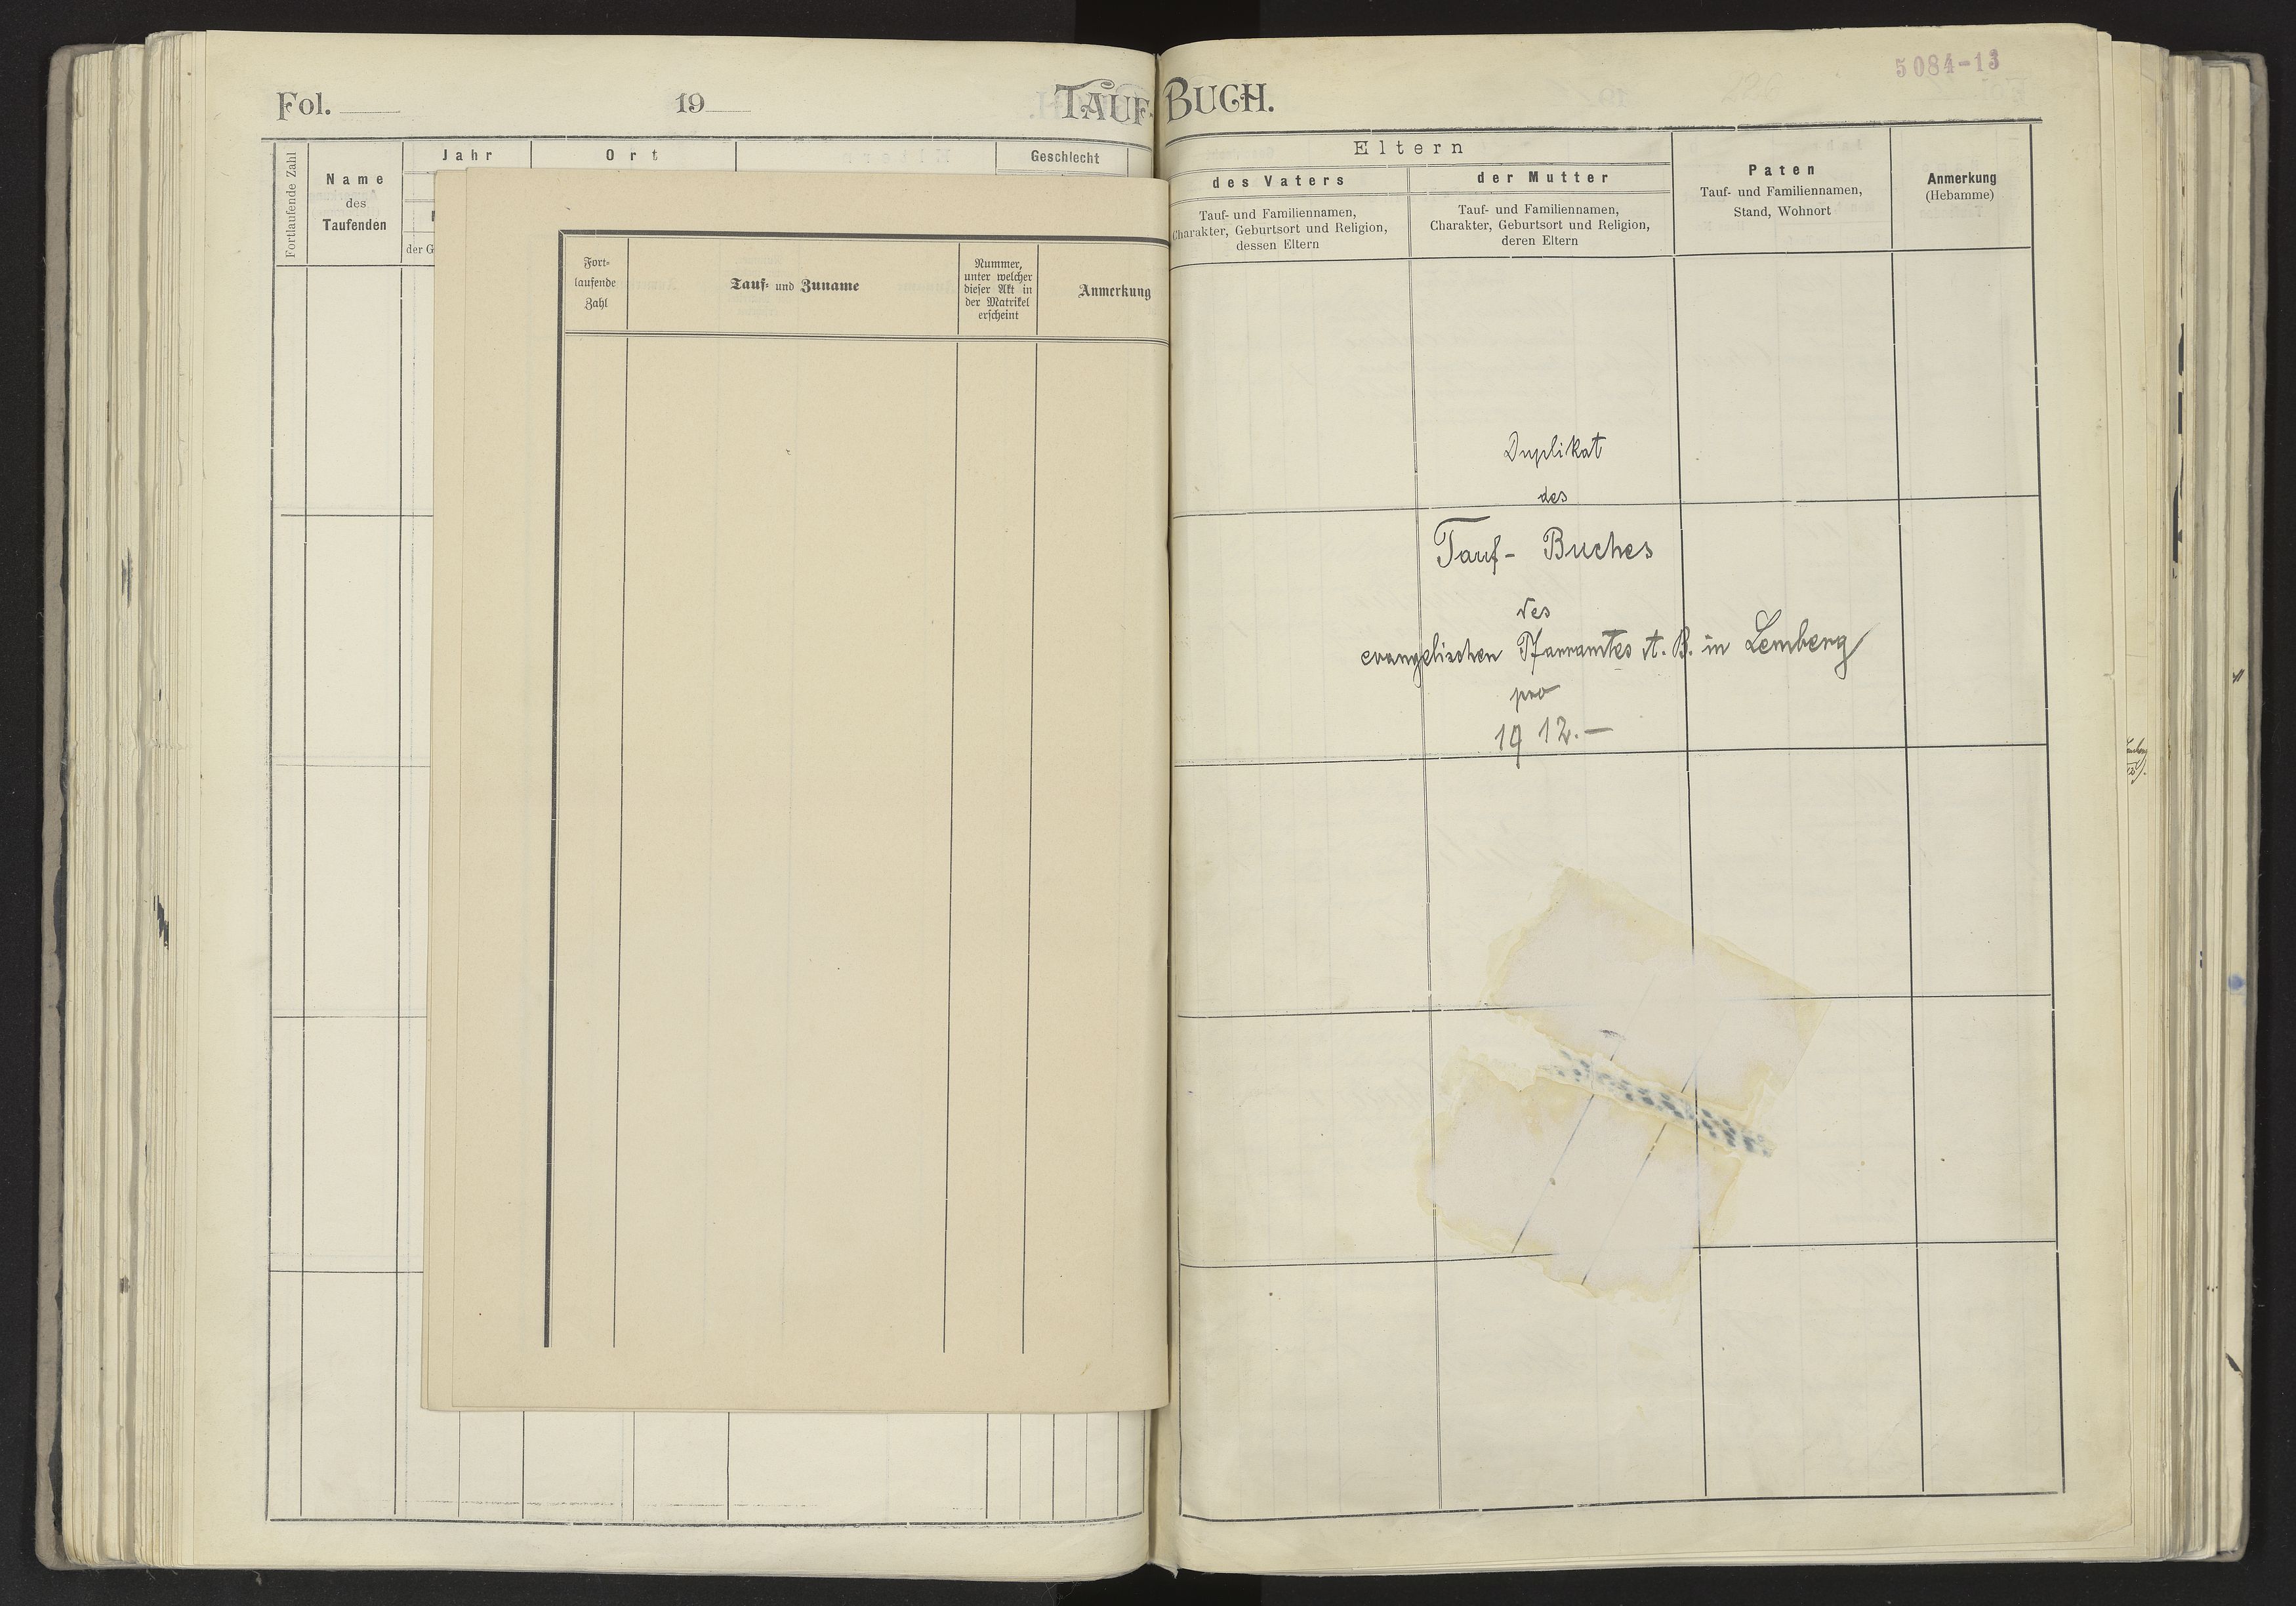 5084-13
Fol. 19 TAUF-BUCH.
Fortlaufende Zahl
Name
des
Taufenden
Jahr
der G
Ort
Geschlecht
Fort-
laufende
Zahl
Tauf- und Zuname
Nummer,
unter welcher
dieser Akt in
der Matrikel
erscheint
Anmerkung
Eltern
des Vaters
Tauf- und Familiennamen,
Charakter, Geburtsort und Religion,
dessen Eltern
der Mutter
Tauf- und Familiennamen,
Charakter, Geburtsort und Religion,
deren Eltern
Paten
Tauf- und Familiennamen,
Stand, Wohnort
Anmerkung
(Hebamme)
Duplikat
des
Tauf- Buches
des
evangelischen Pfarramtes A. B. in Lemberg
pro
1912.—